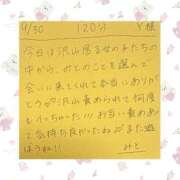 4/30 120分 Y様
今日は沢山居る女の子たちの
中から、みとのこと選んで
会いに来てくれて本当にありが
とう♡沢山責められて何度
もイっちゃった!!! お互い責めあっ
て気持ち良かったね♡また遊
ぼうね!!
みと